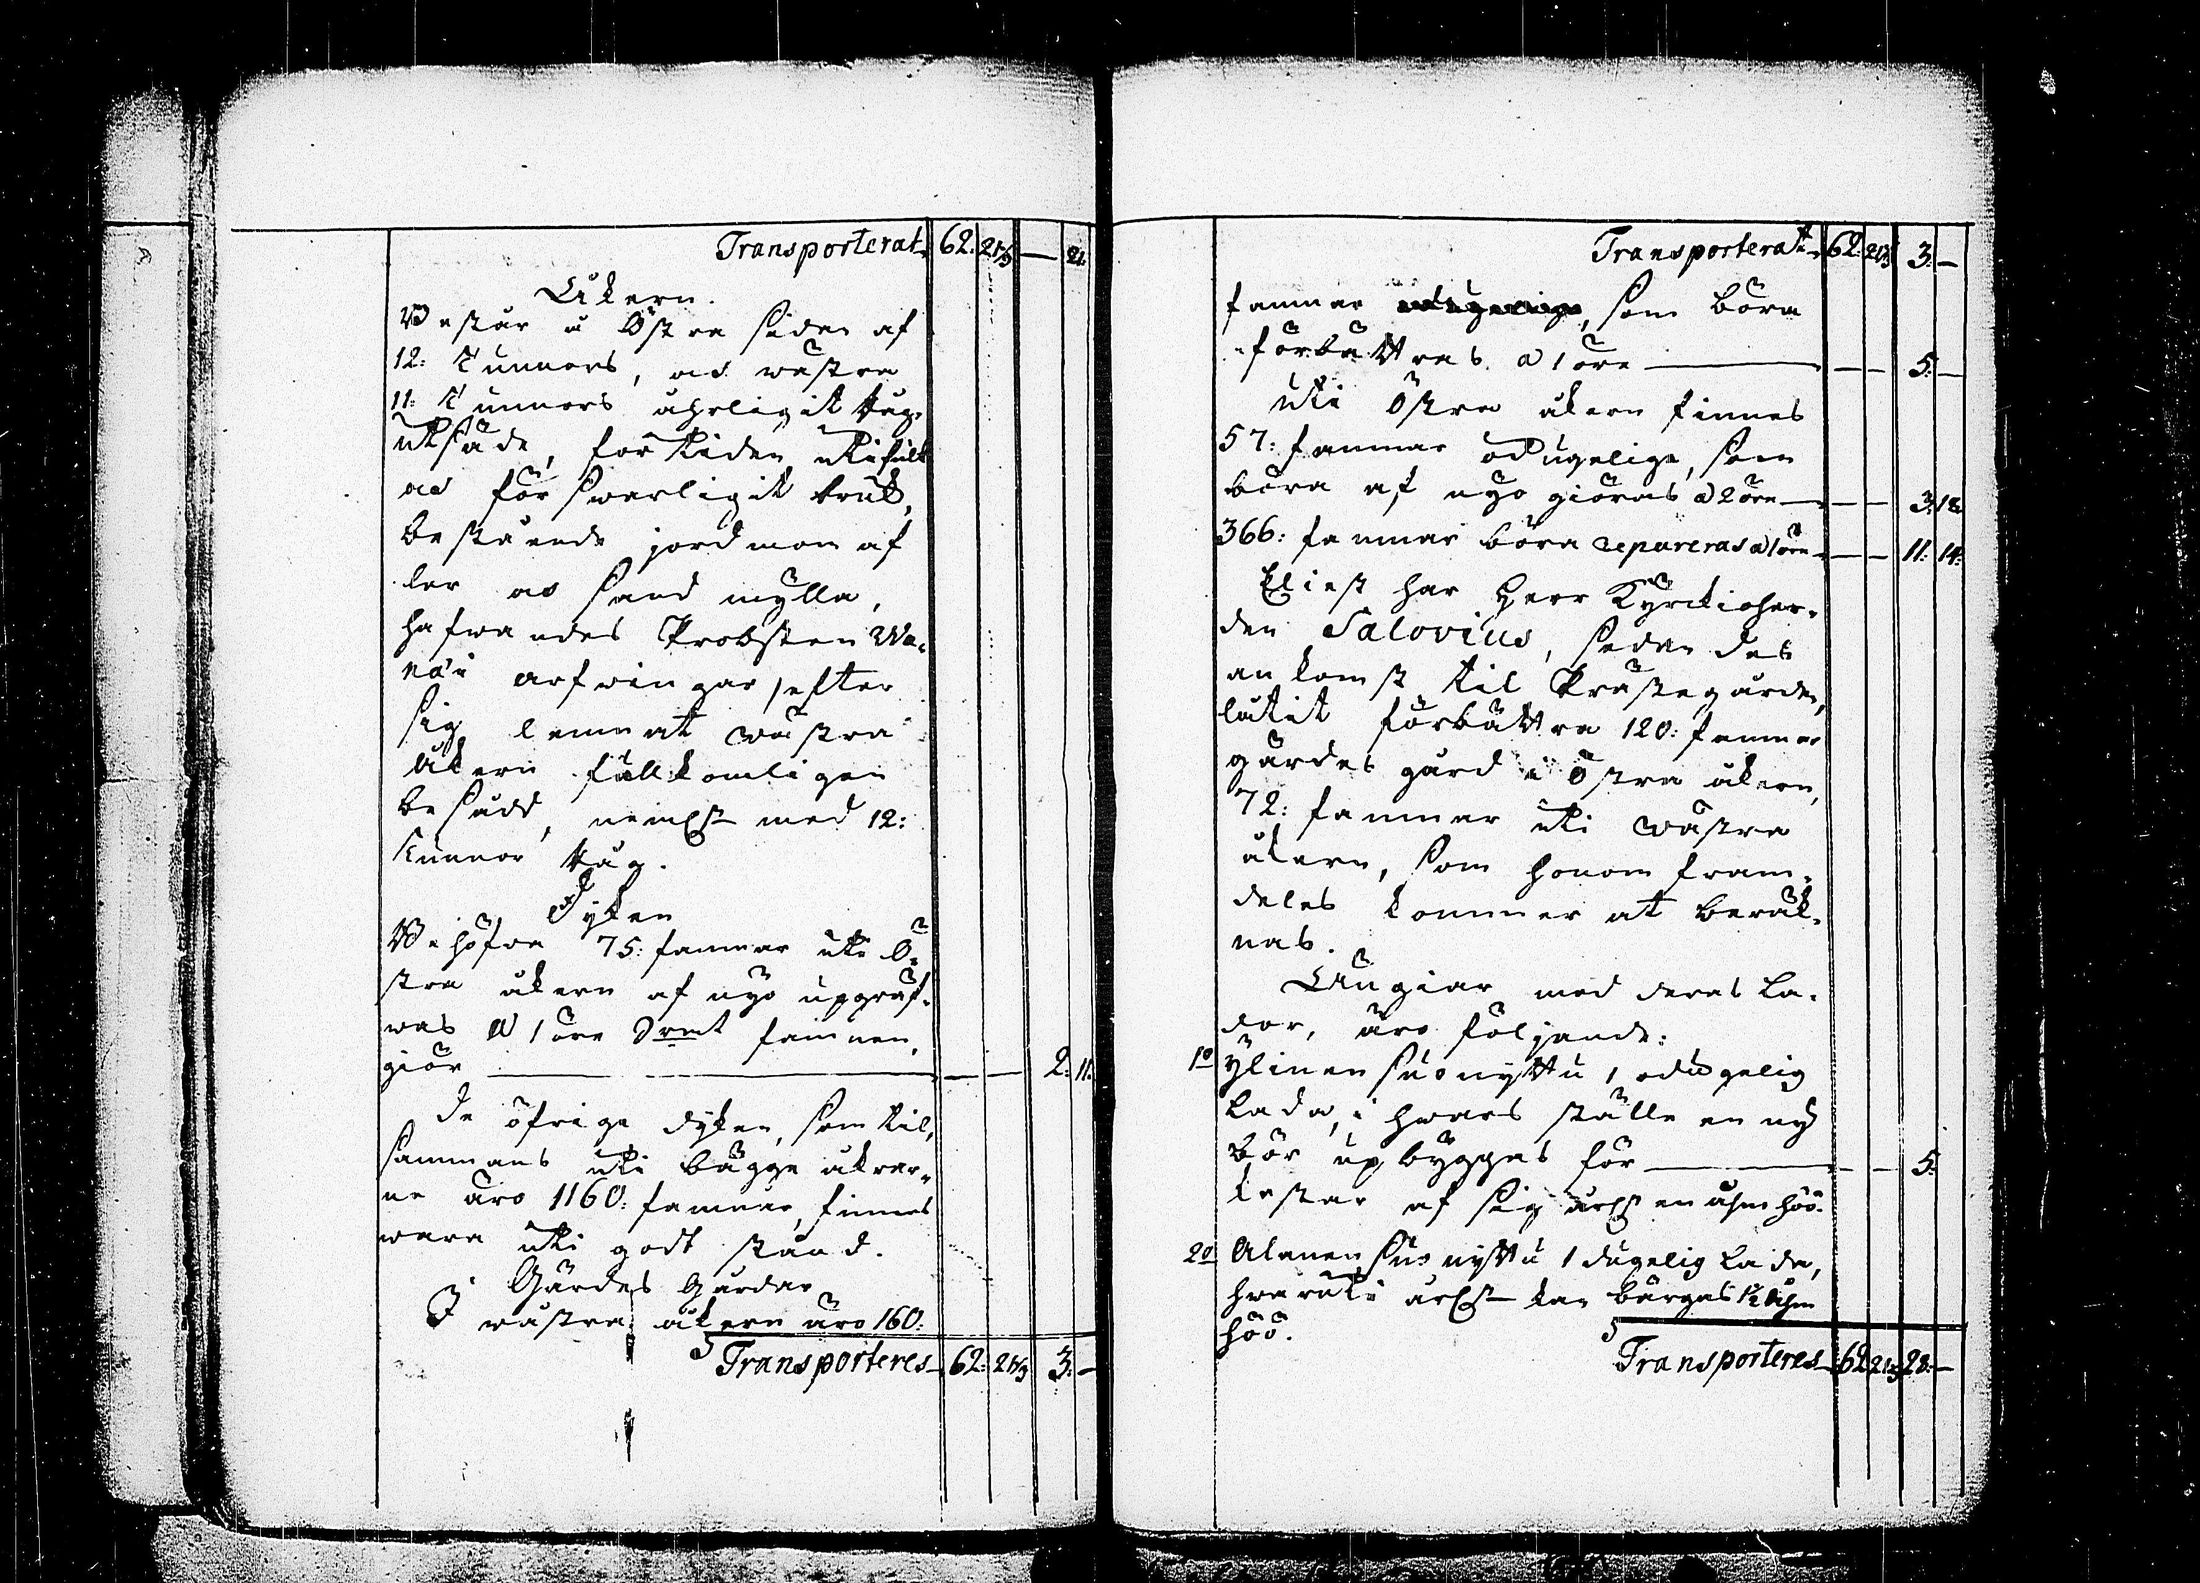 Transporterat 62. 21⅓ — 21.
Åkern.
Består å Östra sidan af
12: Tunnors, och wästra
11: Tunnors åhrligit Råg
utsäde, för tiden uti fült
och förswarligit bruk,
bestående jordmon af
ler och sand mylla,
hafwandes Probsten Wa-
næi arfwingar, efter
sig lemnat wästra
åkern fullkomligen
besådd, nemln med 12:
tunnor Råg.
Dyken
Behöfwa 75: famnar uti Ö-
stra åkern af nyo upgräf-
was @ 1 öre Srmt famnen,
giör — — — — 2. 11.
De öfrige dyken, som til-
sammans uti bägge åkrar-
ne äro 1160: famnar, finnes
wara uti godt stånd.
Gärdes Gårdar
I wästra åkern äro 160:
Transporteres 62: 21⅓ 3. —
Transporterat 62. 21⅓ 3. —
famnar, som böra
förbättras @ 1 öre — — — 5. —
Uti Östra åkern finnes
57: famnar odugelige, som
böra af nyo giöras @ 2 öre — — — 3. 18
366: famnar böra repareras @ 1 öre — — 11: 14:
Eliest har Herr Kyrckioher-
den Salovius, sedan des
ankomst til Prästegården,
låtit förbättra 120: famnar
gärdes gård i Östra åkern,
72: famnar uti wästra
åkern, som honom fram-
deles kommer at beräk-
nas.
Ängiar med deras La-
dor, äro följande:
1o Ylinen suo nyttu 1 odugelig
Lada, i hwars ställe en ny
bör upbyggas för — — — 5.
kastar af sig årln en åhm höö.
2o Alanen suo nyttu 1 dugelig Lada,
hwaruti årln kan bärgas 1½ åhm
höö.
Transporteres 62 21⅓ 23. —